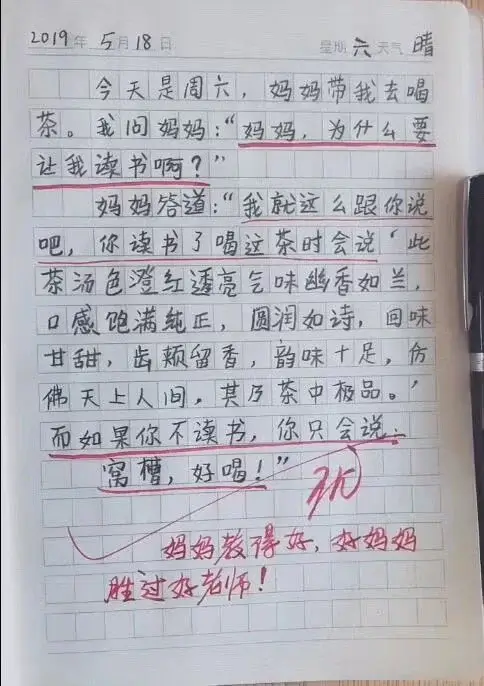 2019年 5月18日 星期 六 天气 晴
今天是周六，妈妈带我去喝
茶。我问妈妈：“妈妈，为什么要
让我读书啊？”
妈妈答道：“我就这么跟你说
吧，你读书了喝这茶时会说‘此
茶汤色澄红透亮气味幽香如兰，
口感饱满纯正，圆润如诗，回味
甘甜，齿颊留香，韵味十足，仿
佛天上人间，其乃茶中极品。’
而如果你不读书，你只会说：
窝槽，好喝！”
妈妈教得好，好妈妈
胜过好老师！